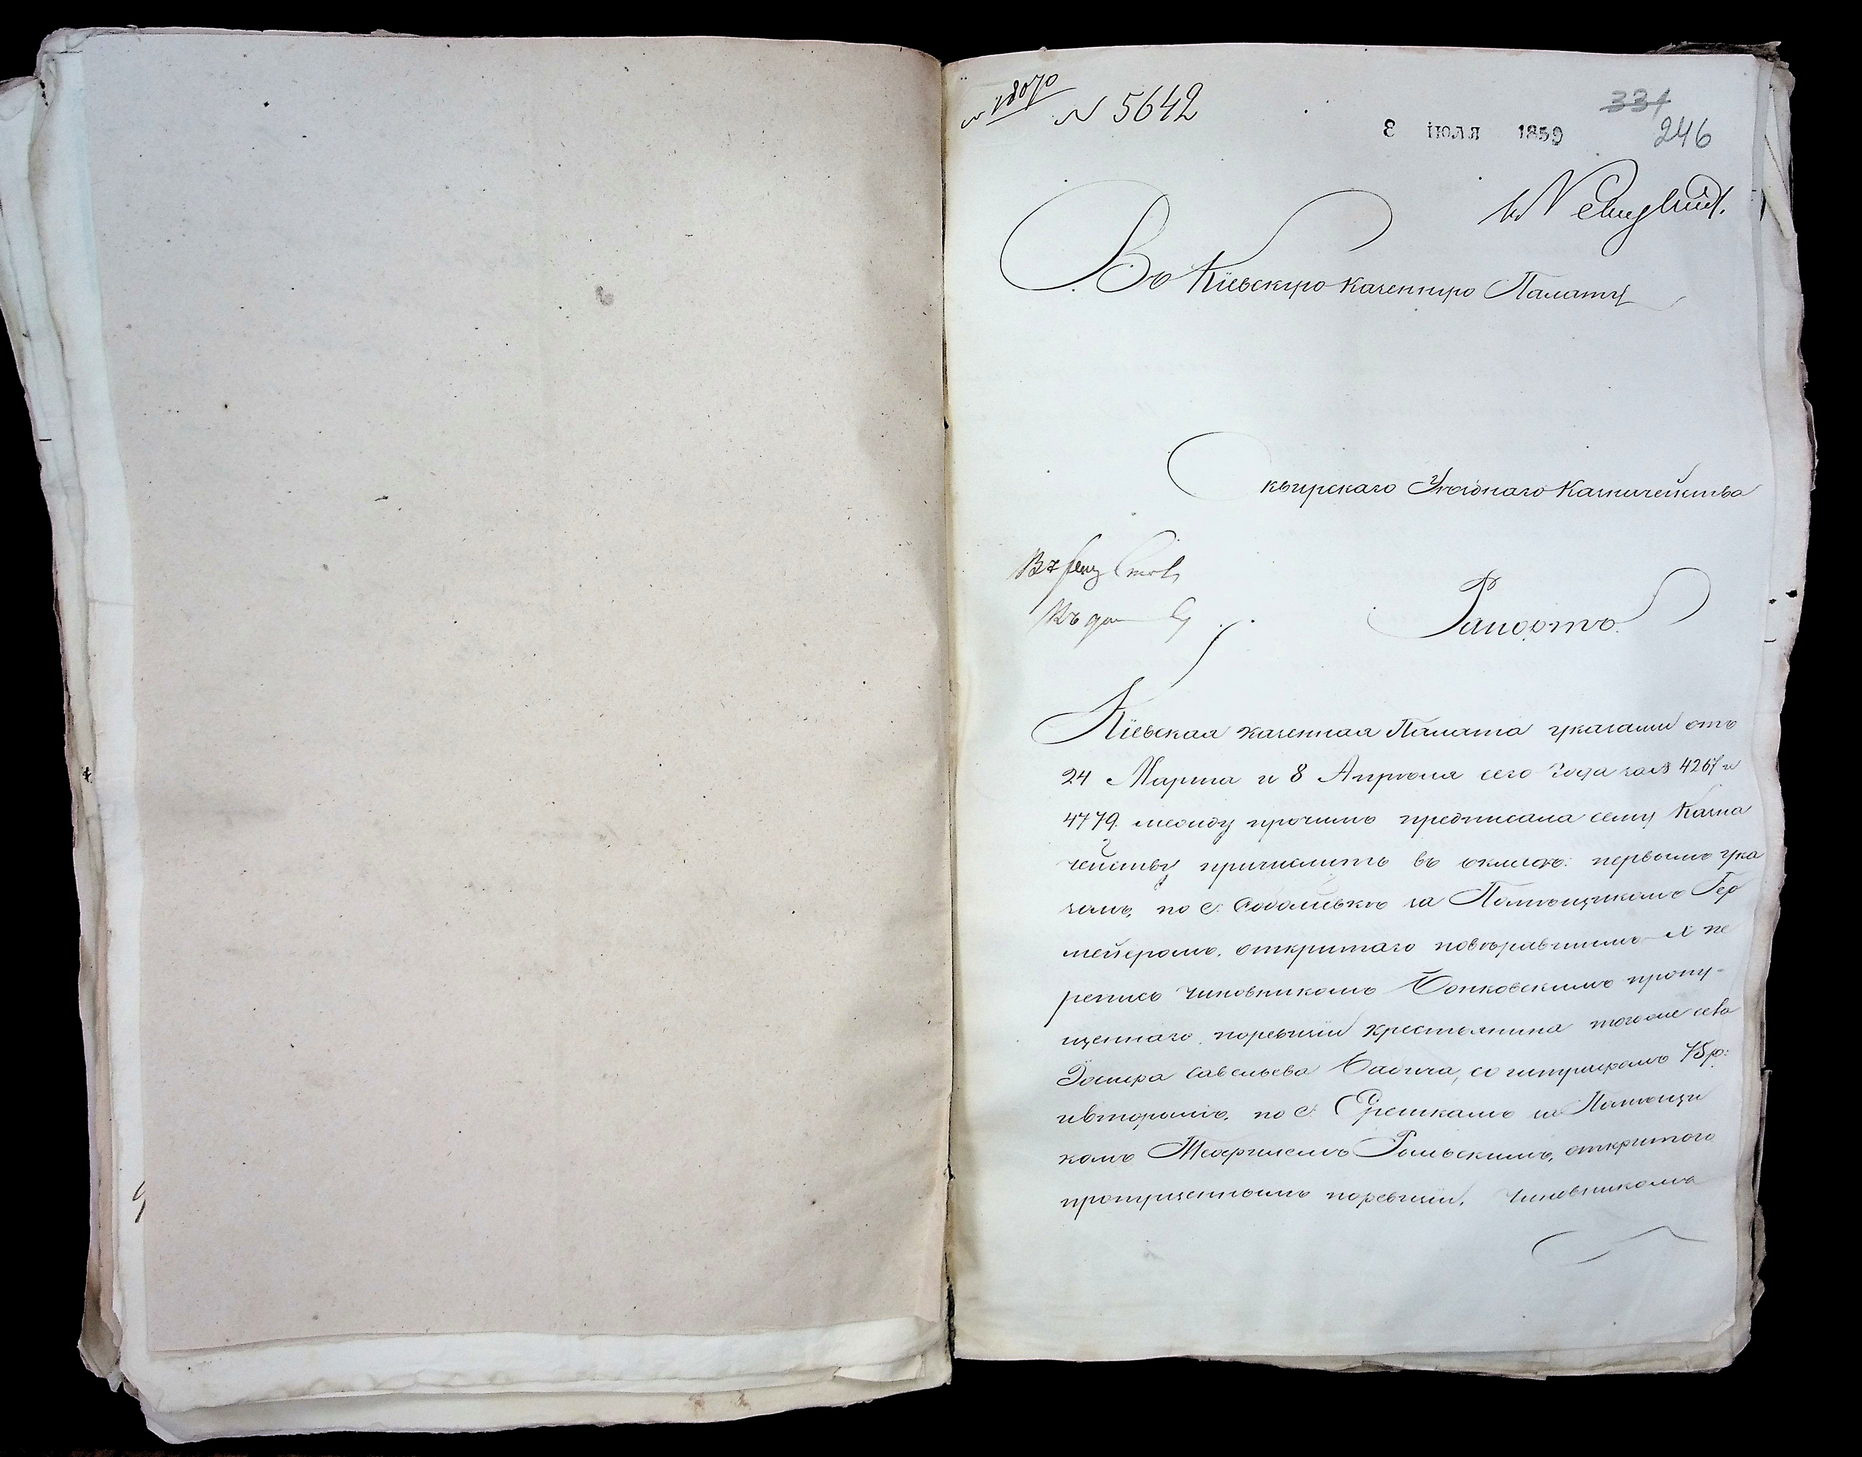 18070
N 5642
331
8 ІЮЛЯ 1859
246
Въ Кіевскую Казенную Палату
Сквирскаго Уѣзднаго Казначейства
Рапортъ.
Кіевская казенная Палата указами отъ
24 Марта и 8 Апрѣля сего Года за № 4267 и
4779. между прочимъ предписала сему Казна
чейству причислить въ окладъ: первымъ ука
зомъ, по с. за Помѣщикомъ Гер
мейеромъ, открытаго повѣрявшимъ X пе
репись чиновникомъ Бонковскимъ пропу-
щеннаго по ревизіи крестьянина тогоже села
Іосифа Савельева со штрафомъ 75 р:
и вторымъ, по с. Ерчикамъ за Помѣщи
комъ Теофилемъ открытого
пропущеннымъ по ревизіи, чиновникомъ